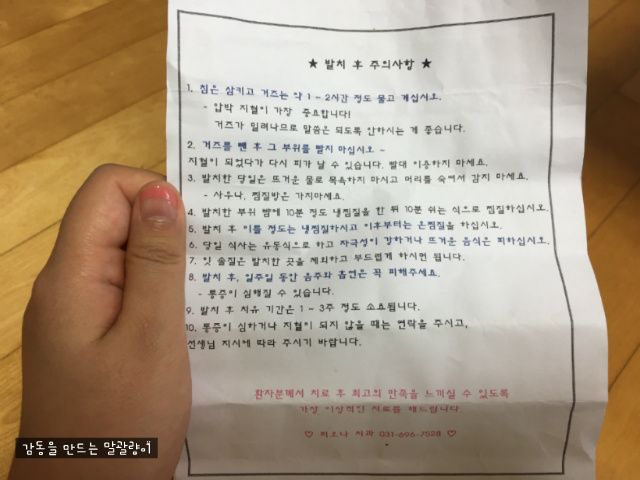 ★ 발치 후 주의사항 ★
1. 침은 삼키고 거즈는 약 1 ~ 2시간 정도 물고 계십시오.
- 압박 지혈이 가장 중요합니다!
거즈가 밀려나므로 말씀은 되도록 안하시는 게 좋습니다.
2. 거즈를 뺀 후 그 부위를 빨지 마십시오 -
지혈이 되었다가 다시 피가 날 수 있습니다. 빨대 이용하지 마세요.
3. 발치한 당일은 뜨거운 물로 목욕하지 마시고 머리를 숙여서 감지 마세요.
- 사우나, 찜질방은 가지마세요.
4. 발치한 부위 뺨에 10분 정도 냉찜질을 한 뒤 10분 쉬는 식으로 찜질하십시오.
5. 발치 후 이틀 정도는 냉찜질하시고 이후부터는 온찜질을 하십시오.
6. 당일 식사는 유동식으로 하고 자극성이 강하거나 뜨거운 음식은 피하십시오.
7. 잇 솔질은 발치한 곳을 제외하고 부드럽게 하시면 됩니다.
8. 발치 후, 일주일 동안 음주와 흡연은 꼭 피해주세요.
- 통증이 심해질 수 있습니다.
9. 발치 후 치유 기간은 1 ~ 3주 정도 소요됩니다.
10. 통증이 심하거나 지혈이 되지 않을 때는 연락을 주시고,
선생님 지시에 따라 주시기 바랍니다.
환자분께서 치료 후 최고의 만족을 느끼실 수 있도록
가장 이상적인 치료를 해드립니다
♡ 피오나 치과 031-696-7528 ♡
감동을 만드는 말괄량이